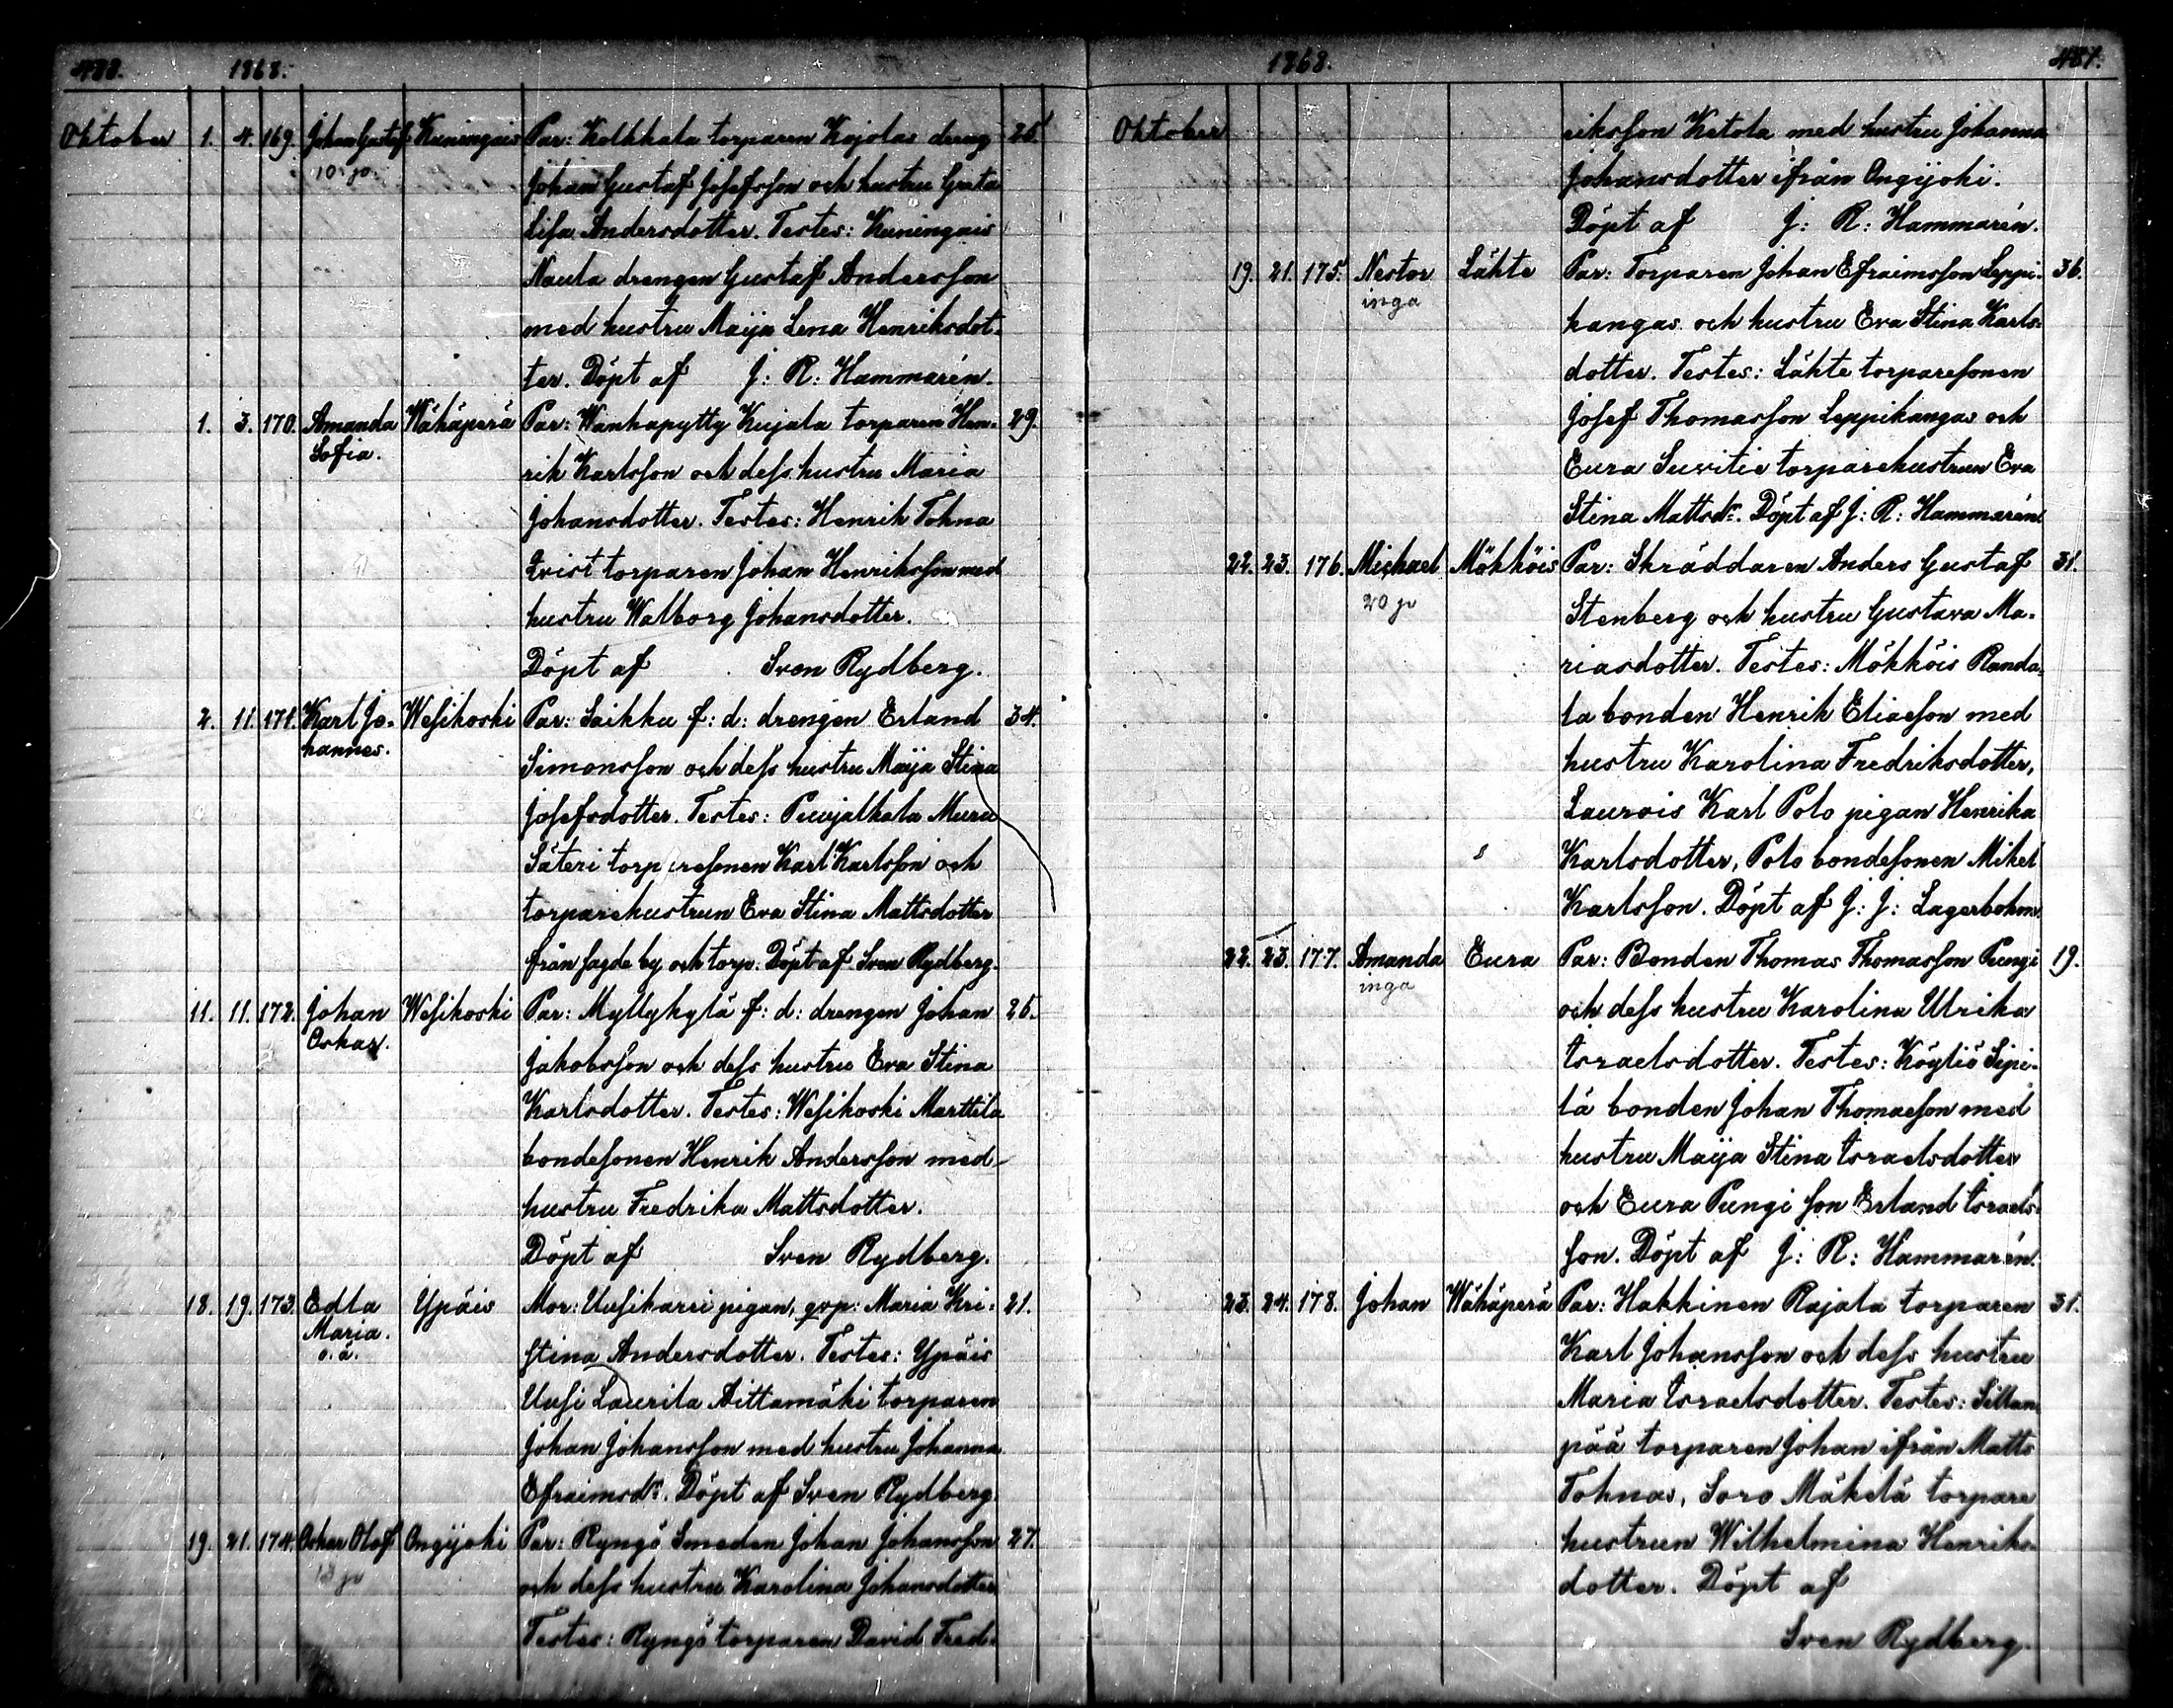 488. 1868.
Oktober 1. 4. 169. Johan Gustaf Kuningais Par: Kolkkala torparen Kojolas dreng 25.
10 jo. Johan Gustaf Josefsson och hustru Greta
Lisa Andersdotter. Testes: Kuningais
Naula drengen Gustaf Andersson
med hustru Maija Lena Henriksdot-
ter. Döpt af J: R: Hammarén.
1. 3. 170. Amanda Wähäperä Par: Wanhapytty Kujala torparen Hen- 29.
Sofia. rik Karlsson och dess hustru Maria
Johansdotter. Testes: Henrik Tohna
Qvist torparen Johan Henriksson med
hustru Walborg Johansdotter.
Döpt af Sven Rydberg.
2. 11. 171. Karl Jo- Wesikoski Par: Saikku f: d: drengen Erland 34.
hannes. Simonsson och dess hustru Maija Stina
Josefsdotter. Testes: Muru
Säteri torparesonen Karl Karlsson och
torparehustrun Eva Stina Mattsdotter
från sagde by och torp. Döpt af Sven Rydberg.
11. 11. 172. Johan Wesikoski Par: Myllykylä f: d: drengen Johan 25.
Oskar. Jakobsson och dess hustru Eva Stina
Karlsdotter. Testes: Wesikoski Marttila
bondesonen Henrik Andersson med
hustru Fredrika Mattsdotter.
Döpt af Sven Rydberg.
18. 19. 173. Edla Ypäis Mor: Uusikarri pigan, qvp: Maria Kri- 21.
Maria. stina Andersdotter. Testes: Ypäis
o. ä. Uusi Laurila Aittamäki torparen
Johan Johansson med hustru Johanna
Efraimsdr. Döpt af Sven Rydberg.
19. 21. 174. Oskar Olof Ongijoki Par: Ryngö Smeden Johan Johansson 27.
13 jo och dess hustru Karolina Johansdotter
Testes: Ryngö torparen David Fred-
1868. 487.
Oktober riksson Ketola med hustru Johanna
Johansdotter ifrån Ongijoki.
Döpt af J: R: Hammarén.
19. 21. 175. Nestor Lähte Par: Torparen Johan Efraimsson Leppi- 36.
inga kangas och hustru Eva Stina Karls-
dotter. Testes: Lähte torparesonen
Josef Thomasson Leppikangas och
Eura Suvitie torparehustrun Eva
Stina Mattsdr. Döpt af J: R: Hammarén
22. 23. 176. Michael Mökköis Par: Skräddaren Anders Gustaf 31.
20 jo Stenberg och hustru Gustava Ma-
riasdotter. Testes: Mökköis Randa-
la bonden Henrik Eliasson med
hustru Karolina Fredriksdotter,
Laurois Karl Polo pigan Henrika
Karlsdotter, Polo bondesonen Mikel
Karlsson. Döpt af J: J: Lagerbohm.
22. 23. 177. Amanda Eura Par: Bonden Thomas Thomasson Pungi 19.
inga och dess hustru Karolina Ulrika
Israelsdotter. Testes: Köyliö Sipi-
lä bonden Johan Thomasson med
hustru Maija Stina Israelsdotter
och Eura Pungi son Erland Israels-
son. Döpt af J: R: Hammarén.
23. 24. 178. Johan Wähäperä Par: Hakkinen Rajala torparen 31.
Karl Johansson och dess hustru
Maria Israelsdotter. Testes: Sillan-
pää torparen Johan ifrån Matts
Tohnas, Soro Mäkelä torpare
hustrun Wilhelmina Henriks-
dotter. Döpt af
Sven Rydberg.